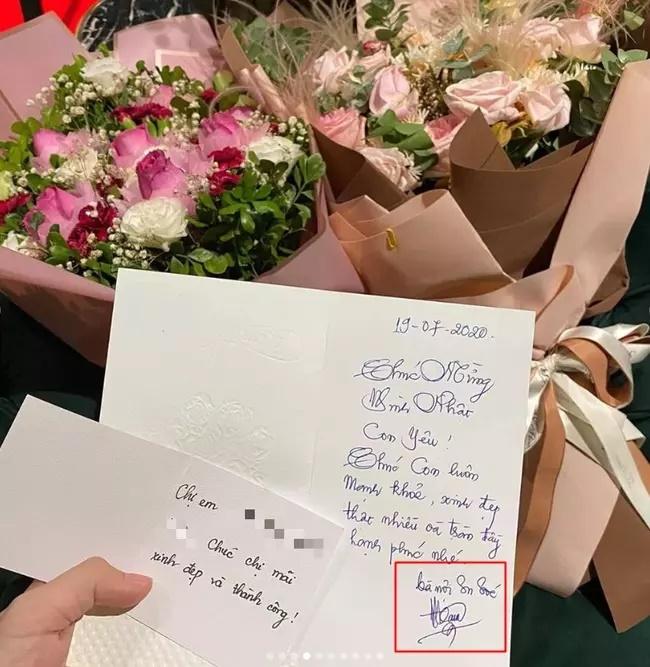 19-07-2020.
Chúc Mừng
Sinh Nhật
Con Yêu!
Chúc Con luôn
Mạnh khỏe, xinh đẹp
thật nhiều và tràn đầy
hạnh phúc nhé.
bà nội
Chị em
Chúc chị mãi
xinh đẹp và thành công!